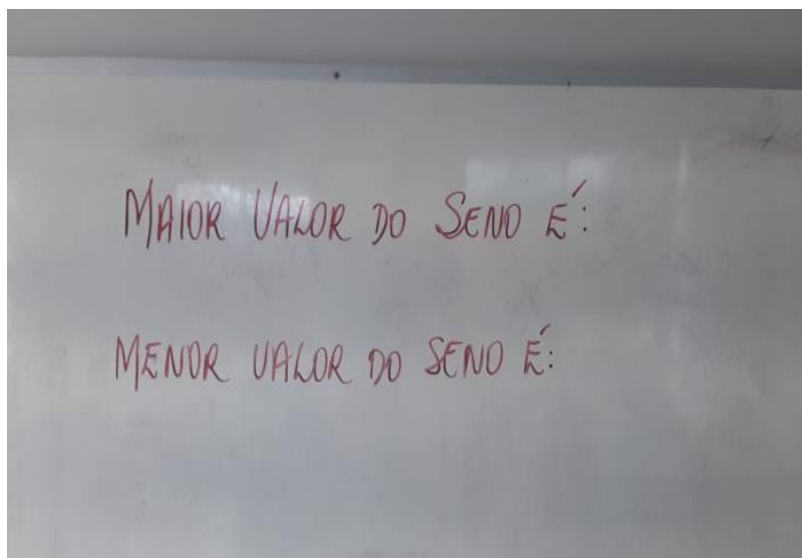 MAIOR VALOR DO SENO É:
MENOR VALOR DO SENO É: